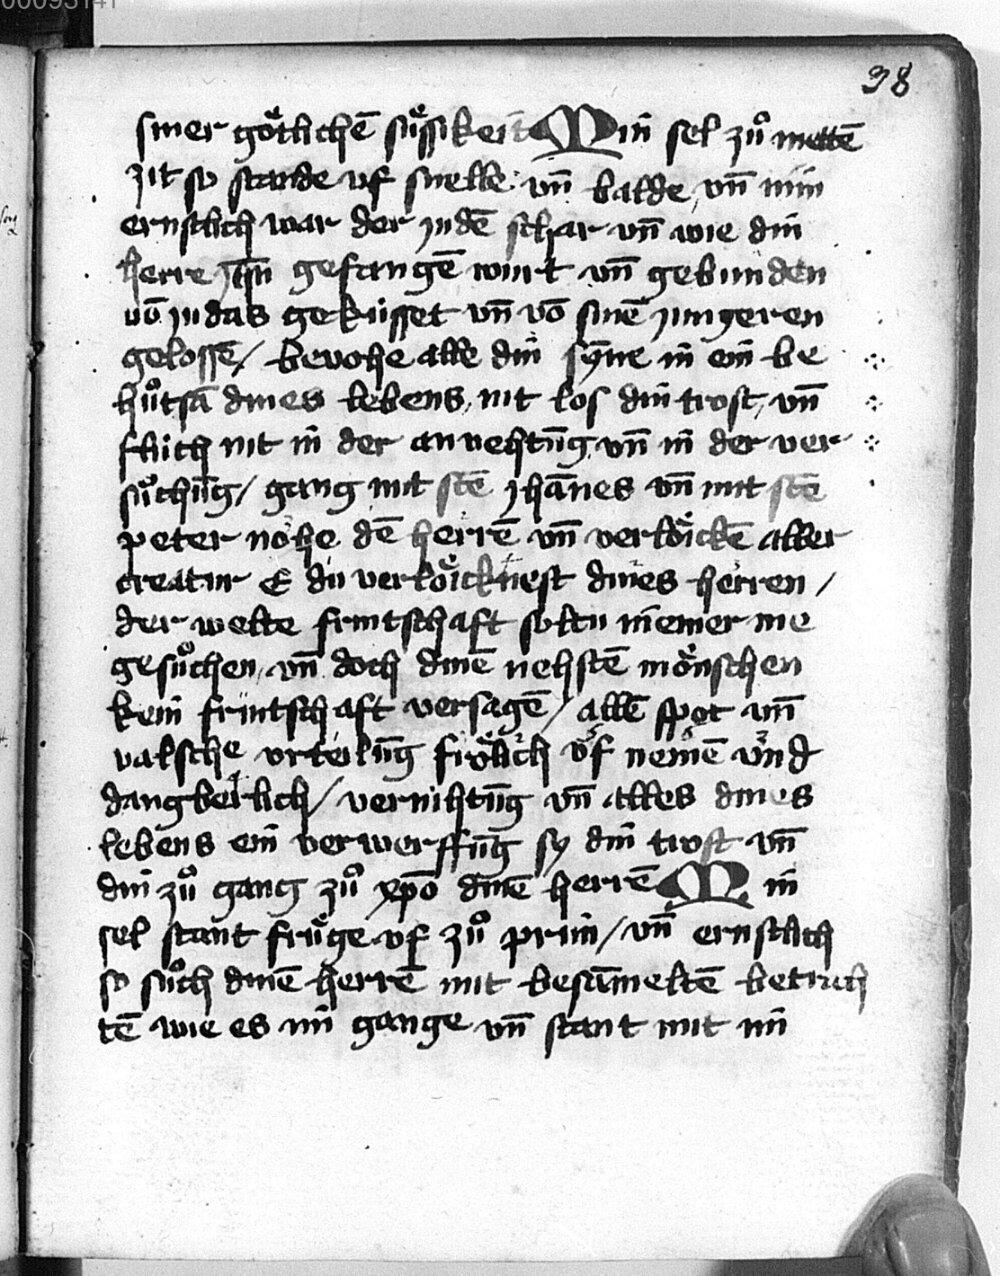 00093141
38
siner go̊tlichē su̍ssikeit Min sel zů mettē
zit so stande vf snelle vn̄ balde vn̄ nim
ernstlich war der judē schar vn̄ wie din
herre jhu̅ gefangē wurt vn̄ gebunden
vō judas geküsset vn̄ vō sinē jungeren
gelossē / bevolhe alle din syne in ein be
hůtsā dines lebens nit los din trost vn̄
flúch nit in der anvechtūg vn̄ in der ver
sůchūg / gang mit sctē jhānes vn̄ mit sctē
peter nohe dē herrē vn̄ verlöickē aller
creatur E du verlöicknest dines herren /
der welte fruntschaft soltu niemer me
gesůchen vn̄ doch dinē nehstē mönschen
kein früntschaft versagē / allē spot vn̄
valsche vrteilūg frölich vf nemē vnd
dangberlich / vernihtūg vn̄ alles dines
lebens ein verwerffūg sy din trost vn̄
din zů gang zů xpō dinē herrē Min
sel stant frůge vf zů prim / vn̄ ernstlich
so sůch dinē herrē mit besāmeltē betrach
tē wie es im gange vn̄ stant mit im